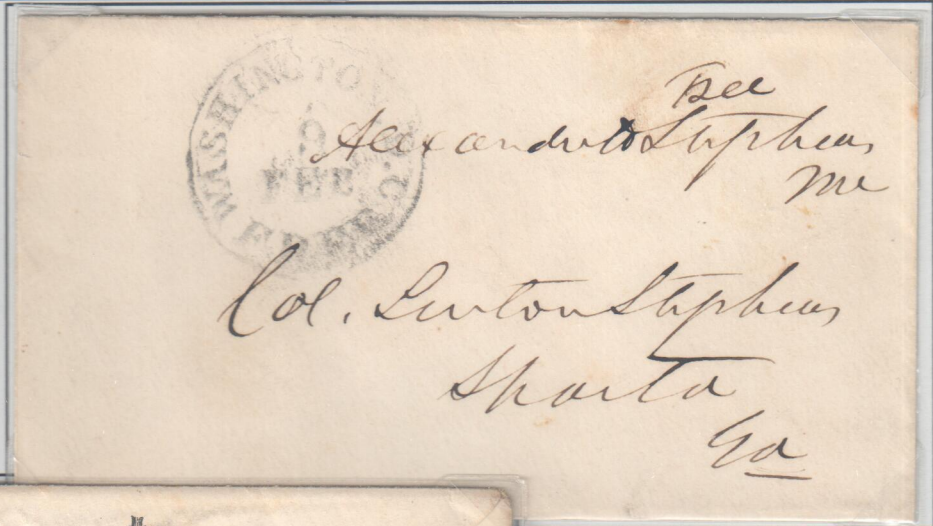 WASHINGTON D.C.
9
FEB
FREE
Free
Alexander H Stephens
MC
Col. Linton Stephens
Sparta
Ga